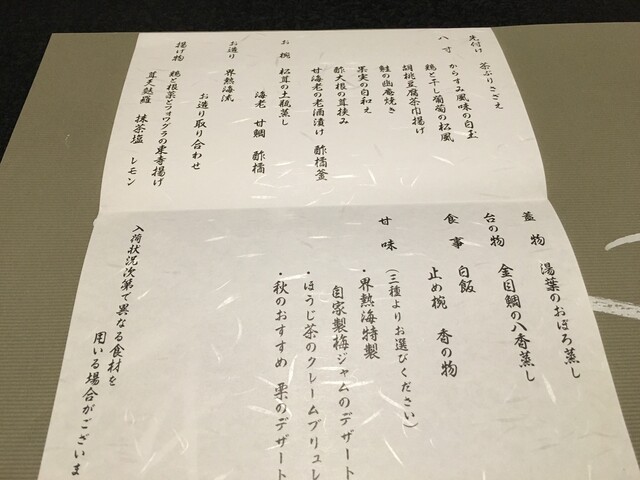 先付け 茶ぶりさざえ
八寸 からすみ風味の白玉
鶏と干し葡萄の松風
胡桃豆腐茶巾揚げ
鮭の幽庵焼き
果実の白和え
酢大根の茸挟み
甘海老の老酒漬け 酢橘釜
お椀 松茸の土瓶蒸し
海老 甘鯛 酢橘
お造り 界熱海流
お造り取り合わせ
揚げ物 鶏と根菜とフォワグラの東寺揚げ
茸天麩羅 抹茶塩 レモン
蓋物 湯葉のおぼろ蒸し
台の物 金目鯛の八香蒸し
食事 白飯
止め椀 香の物
甘味 (三種よりお選びください)
・界熱海特製
自家製梅ジャムのデザート
・ほうじ茶のクレームブリュレ
・秋のおすすめ 栗のデザート
入荷状況次第で異なる食材を
用いる場合がございま